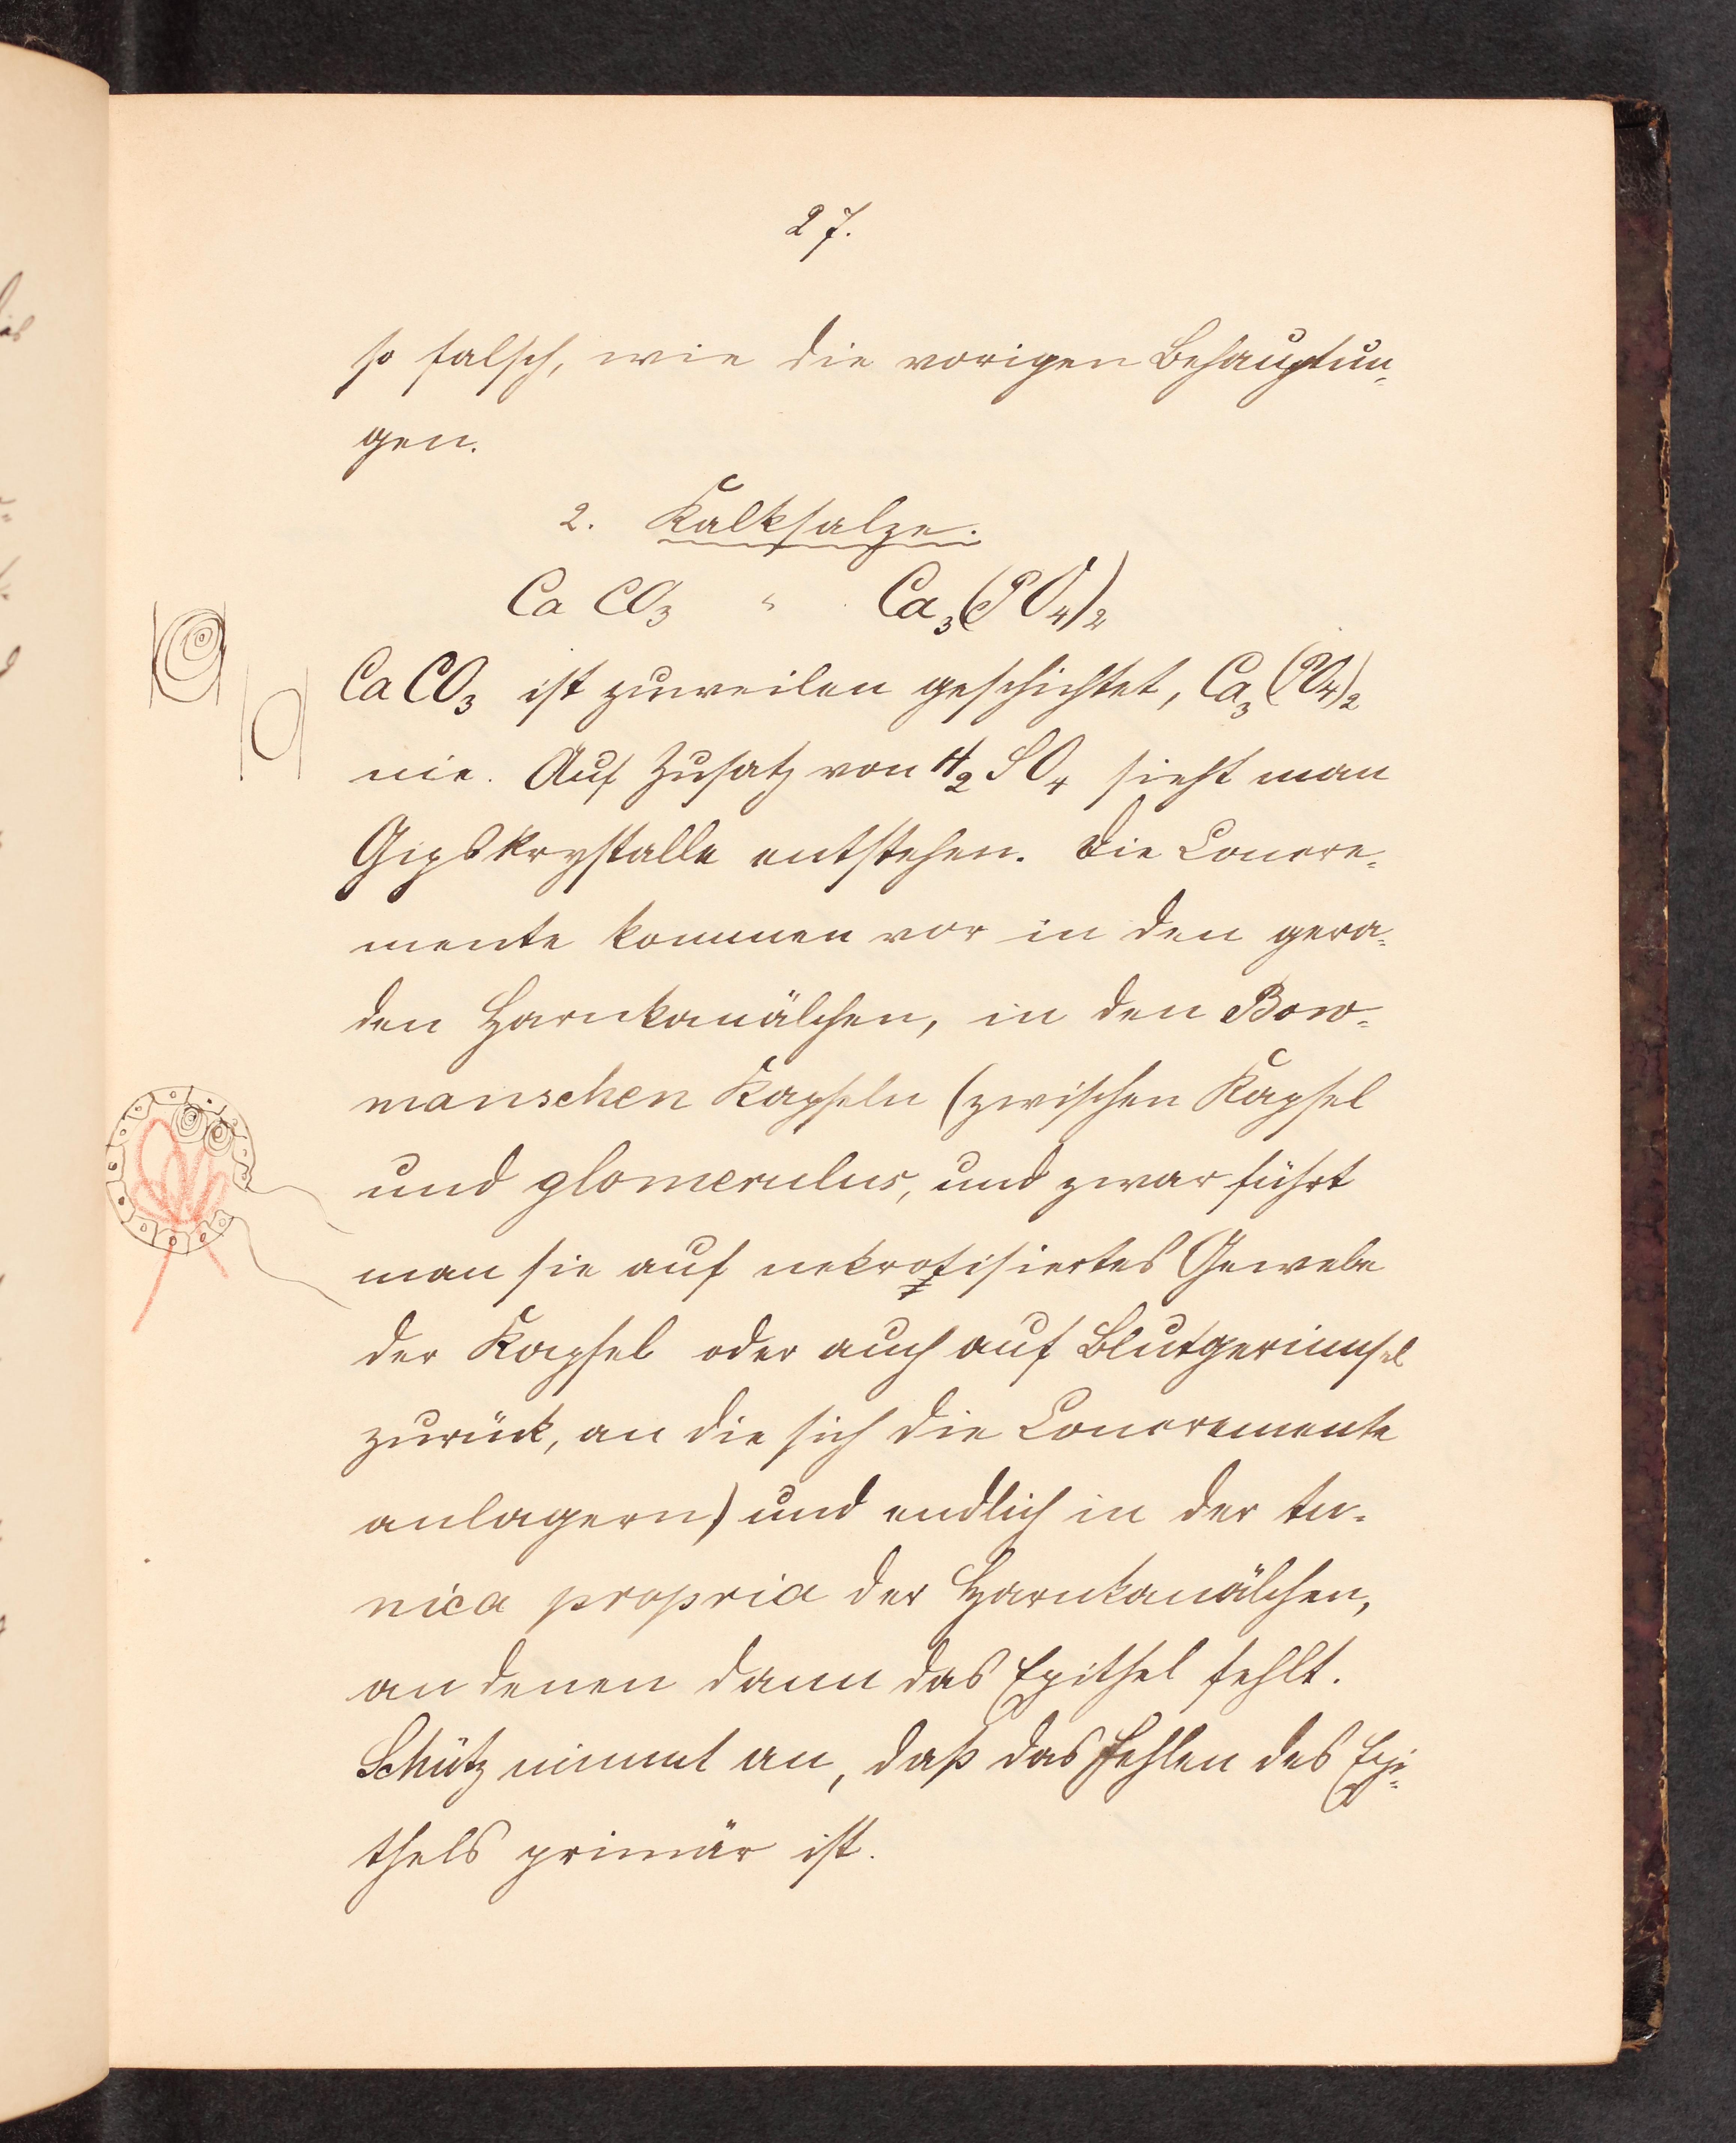 27.
so falsch, wie die vorigen Behauptun-
gen.
2. Kalksalze.
Ca CO3 " Ca3(PO4)2
Ca CO3 ist zuweilen geschichtet, Ca3(PO4)2
nie. Auf Zusatz von H2SO4 sieht man
Gipskrystalle entstehen. Die Concre-
mente kommen vor in den gera-
den Harnkanälchen, in den Bow-
manschen Kapseln (zwischen Kapsel
und glomerulus, und zwar führt
man sie auf nekrotisiertes Gewebe
der Kapsel oder auch auf Blutgerinnsel
zurück, an die sich die Concremente
anlagern) und endlich in der tu-
nica propria der Harnkanälchen,
an denen dann das Epithel fehlt.
Schütz nimmt an, daß das Fehlen des Epi-
thels primär ist.